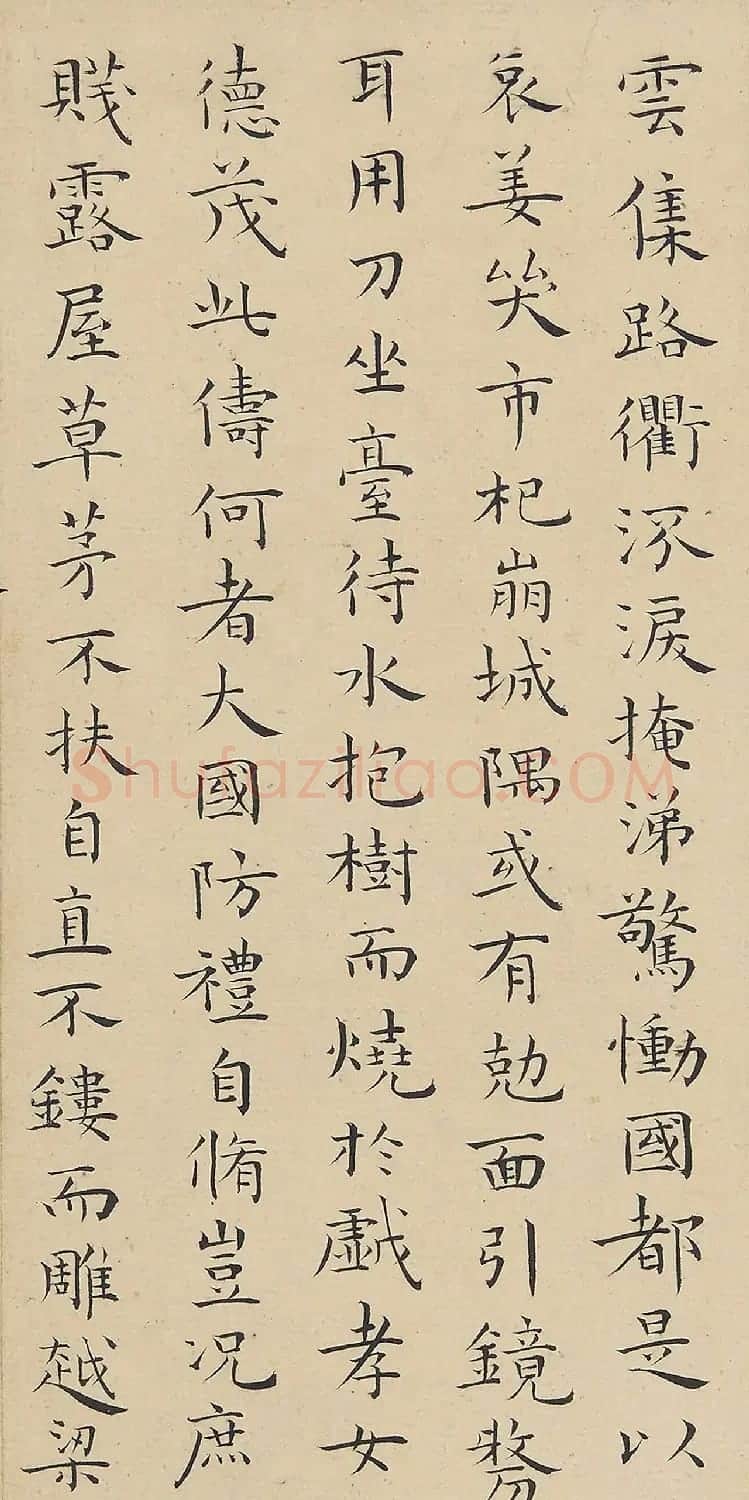 雲集路衢流淚掩涕驚慟國都是以
哀姜哭市杞崩城隅或有勊面引鏡剺
耳用刀坐臺待水抱樹而燒於戲孝女
德茂此儔何者大國防禮自脩豈況庶
賤露屋草茅不扶自直不鏤而雕越梁
Shufaziliao.COM